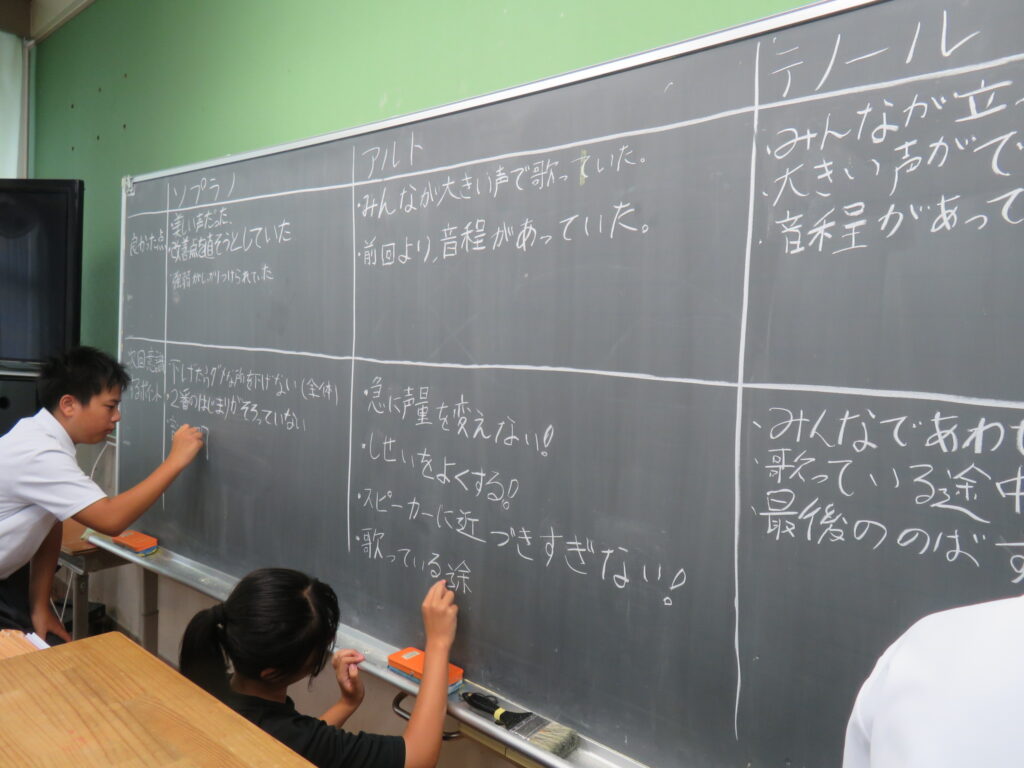 ソプラノ
アルト
テノール
良かった点
美しい声だった
改善点を直そうとしていた
強弱がしっかりつけられていた
・みんなが大きい声で歌っていた。
・前回より、音程があっていた。
・みんなが立っ
・大きい声がで
・音程があって
次回意識
ポイント
下げたらダメな所を下げない(全体)
・2番のはじまりがそろっていない
・急に声量を変えない!
・しせいをよくする!
・スピーカーに近づきすぎない!
・歌っている途
・みんなであわせ
・歌っている途中
・最後ののばす